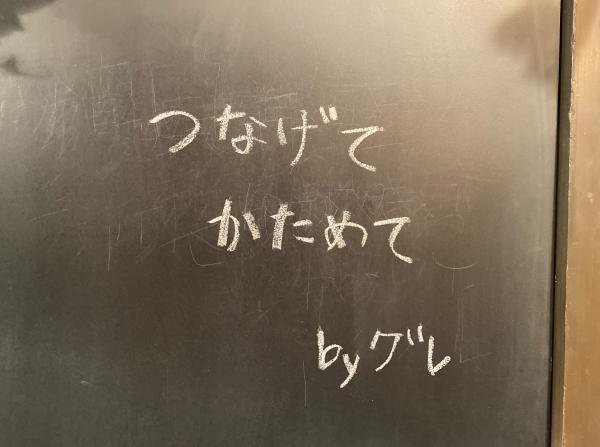 つなげて
かためて
byグレ